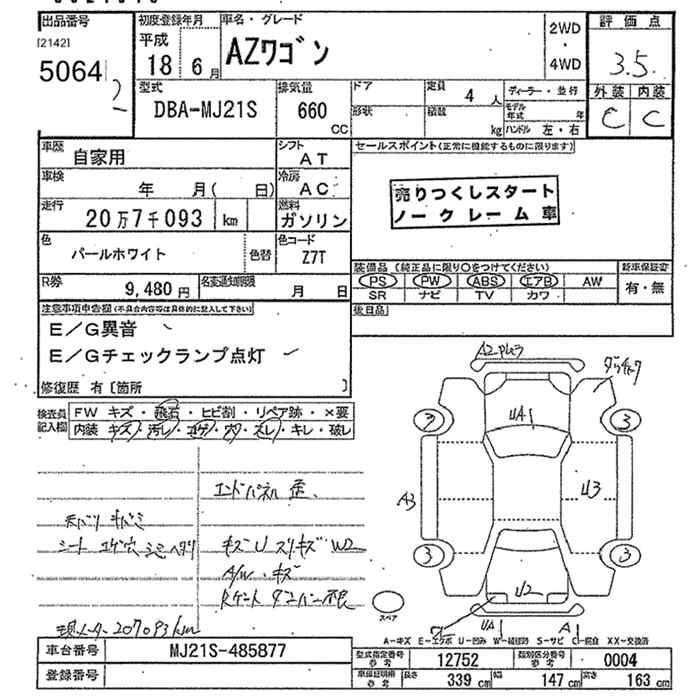 出品番号
[2142]
5064
2
初度登録年月
平成
18 6月
車名・グレード
AZワゴン
2WD
・
4WD
評価点
3.5
外装 内装
C C
型式
DBA-MJ21S
排気量
660
CC
ドア
形状
定員 4 人
積載 kg
ディーラー・並行
モデル年式 年
ハンドル 左・右
車歴 自家用
シフト AT
車検 年 月( 日)
冷房 AC
走行 20万7千093 km
燃料 ガソリン
色 パールホワイト 色替
色コード Z7T
R券 9,480円
名変通知期限 月 日
セールスポイント(正常に機能するものに限ります)
売りつくしスタート
ノークレーム車
装備品(純正品に限り○をつけてください)
PS PW ABS エアB AW
SR ナビ TV カワ
新車保証書
有・無
後日品
注意事項申告欄(不具合内容等は具体的に記入して下さい)
E/G異音
E/Gチェックランプ点灯
修復歴 有〔箇所 〕
検査員
記入欄
FW キズ・飛石・ヒビ割・リペア跡・×要
内装 キズ・汚レ・コゲ・穴・スレ・キレ・破レ
エンドパネル 歪
シート コゲ穴
キズ U スリキズ W2
A/W キズ
現メーター207093km
A2
3
3
UA1
A3
U3
3
3
U2
UA1
A1
スペア
A-キズ E-エクボ U-凹み W-補修跡 S-サビ C-腐食 XX-交換済
車台番号 MJ21S-485877
登録番号
型式指定番号 参考 12752
類別区分番号 参考 0004
車検証明用 参考 長さ 339 cm 幅 147 cm 高さ 163 cm